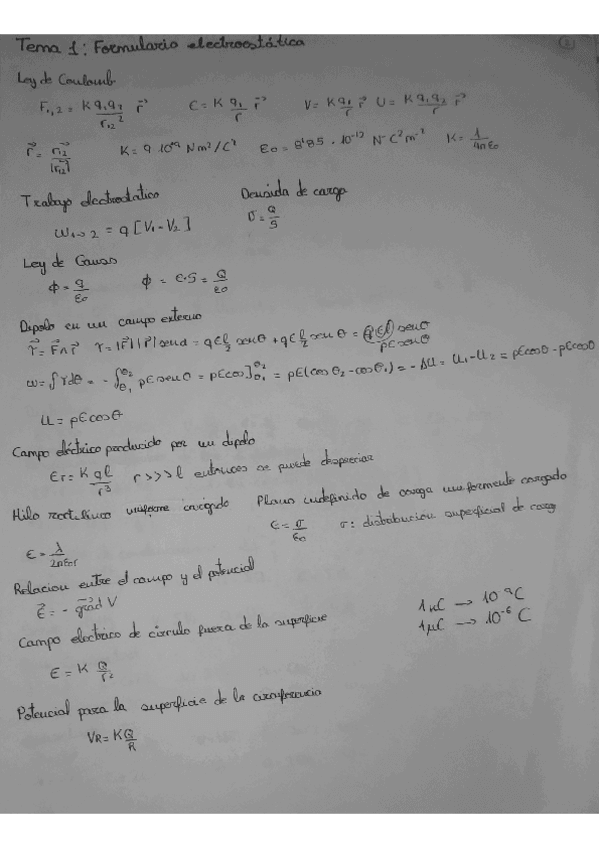 Tema 1: Formulario electroostática
Ley de Coulomb
F₁,₂ = K q₁q₂/r₁₂² r⃗ C = K q₁/r r⃗ V = K q₁/r r⃗ U = K q₁q₂/r r⃗
r⃗ = r₁₂/|r₁₂| K = 9·10⁺⁹ Nm²/C² ε₀ = 8'85·10⁻¹² N⁻C²m⁻² K = 1/4πε₀
Trabajo electrostático Densida de carga
W₁→₂ = q[V₁-V₂] σ = Q/S
Ley de Gauss
ϕ = q/ε₀ ϕ = E·S = Q/ε₀
Dipolo en un campo externo
γ⃗ = F⃗∧r⃗ γ = |F||r| senα = qE l/2 senθ + qE l/2 senθ = qEl senθ
pE senθ
w = ∫γdθ = - ∫θ₁^θ₂ pE senθ = pE cos]θ₁^θ₂ = pE(cosθ₂ - cosθ₁) = -ΔU = U₁-U₂ = pEcosθ - pEcosθ
U = pEcosθ
Campo eléctrico producido por un dipolo
Er = K ql/r³ r>>>l entonces se puede despreciar
Hilo rectilíneo uniforme cargado Plano indefinido de carga uniformemente cargado
E = λ/2πε₀r E = σ/ε₀ σ: distribución superficial de carga
Relacion entre el campo y el potencial
E⃗ = - grad V
1nC → 10⁻⁹C
1μC → 10⁻⁶C
Campo electrico de circulo fuera de la superficie
E = K Q/r²
Potencial para la superficie de la circunferencia
VR = K Q/R